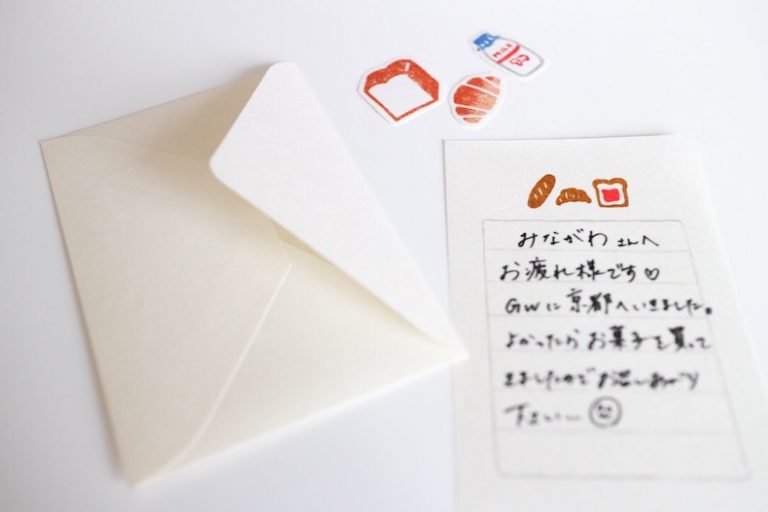 MILK
みながわさんへ
お疲れ様です♡
GWに京都へいきました。
よかったらお菓子を買って
きましたのでお召しあがり
下さいー